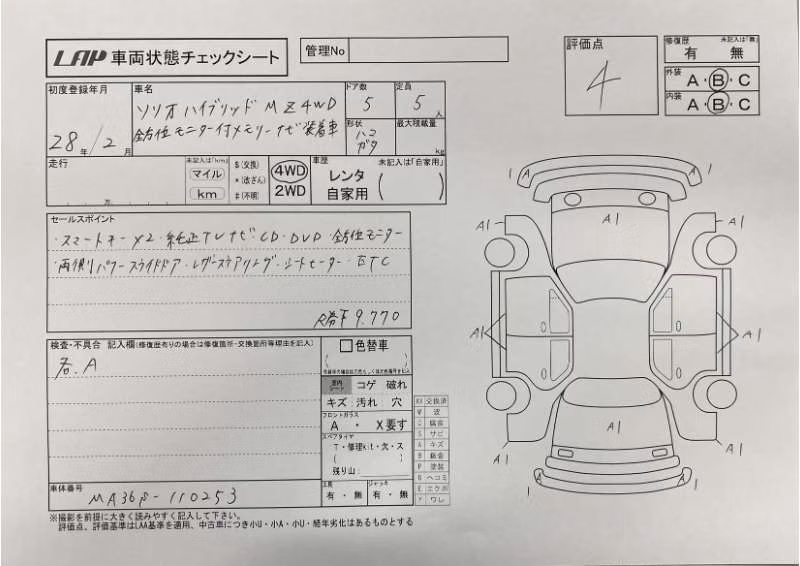 LAP 車両状態チェックシート
管理No
評価点
4
修復歴 未記入は「無」
有 無
外装 A・B・C
内装 A・B・C
初度登録年月
28年/2月
車名
ソリオハイブリッド MZ4WD
全方位モニター付メモリーナビ装着車
ドア数
5
定員
5人
形状
ハコ
最大積載量
kg
走行
万
未記入は「km」
マイル
km
$(交換)
*(改ざん)
#(不明)
4WD
2WD
車歴 未記入は「自家用」
レンタ
自家用
セールスポイント
・スマートキー×2・純正TVナビ・CD・DVD・全方位モニター
・両側パワースライドドア・レザーステアリング・シートヒーター・ETC
R券¥9,770
検査・不具合 記入欄(修復歴有りの場合は修復箇所・交換箇所等理由を記入)
各.A
色替車
室内シート
コゲ 破れ
キズ 汚れ 穴
フロントガラス
A ・ X要す
スペアタイヤ
T・修理kit・欠・ス
残り山:
工具
有・無
ジャッキ
有・無
車体番号
MA36S-110253
※撮影を前提に大きく読みやすく記入して下さい。
評価点、評価基準はLAA基準を適用、中古車につき小U・小A・小U・経年劣化はあるものとする
XX 交換済
W 波
C 腐食
S サビ
A キズ
B 鈑金
P 塗装
U ヘコミ
E エクボ
Y ワレ
A1
A1
A1
A1
A1
A1
A1
A1
A1
A1
A1
A1